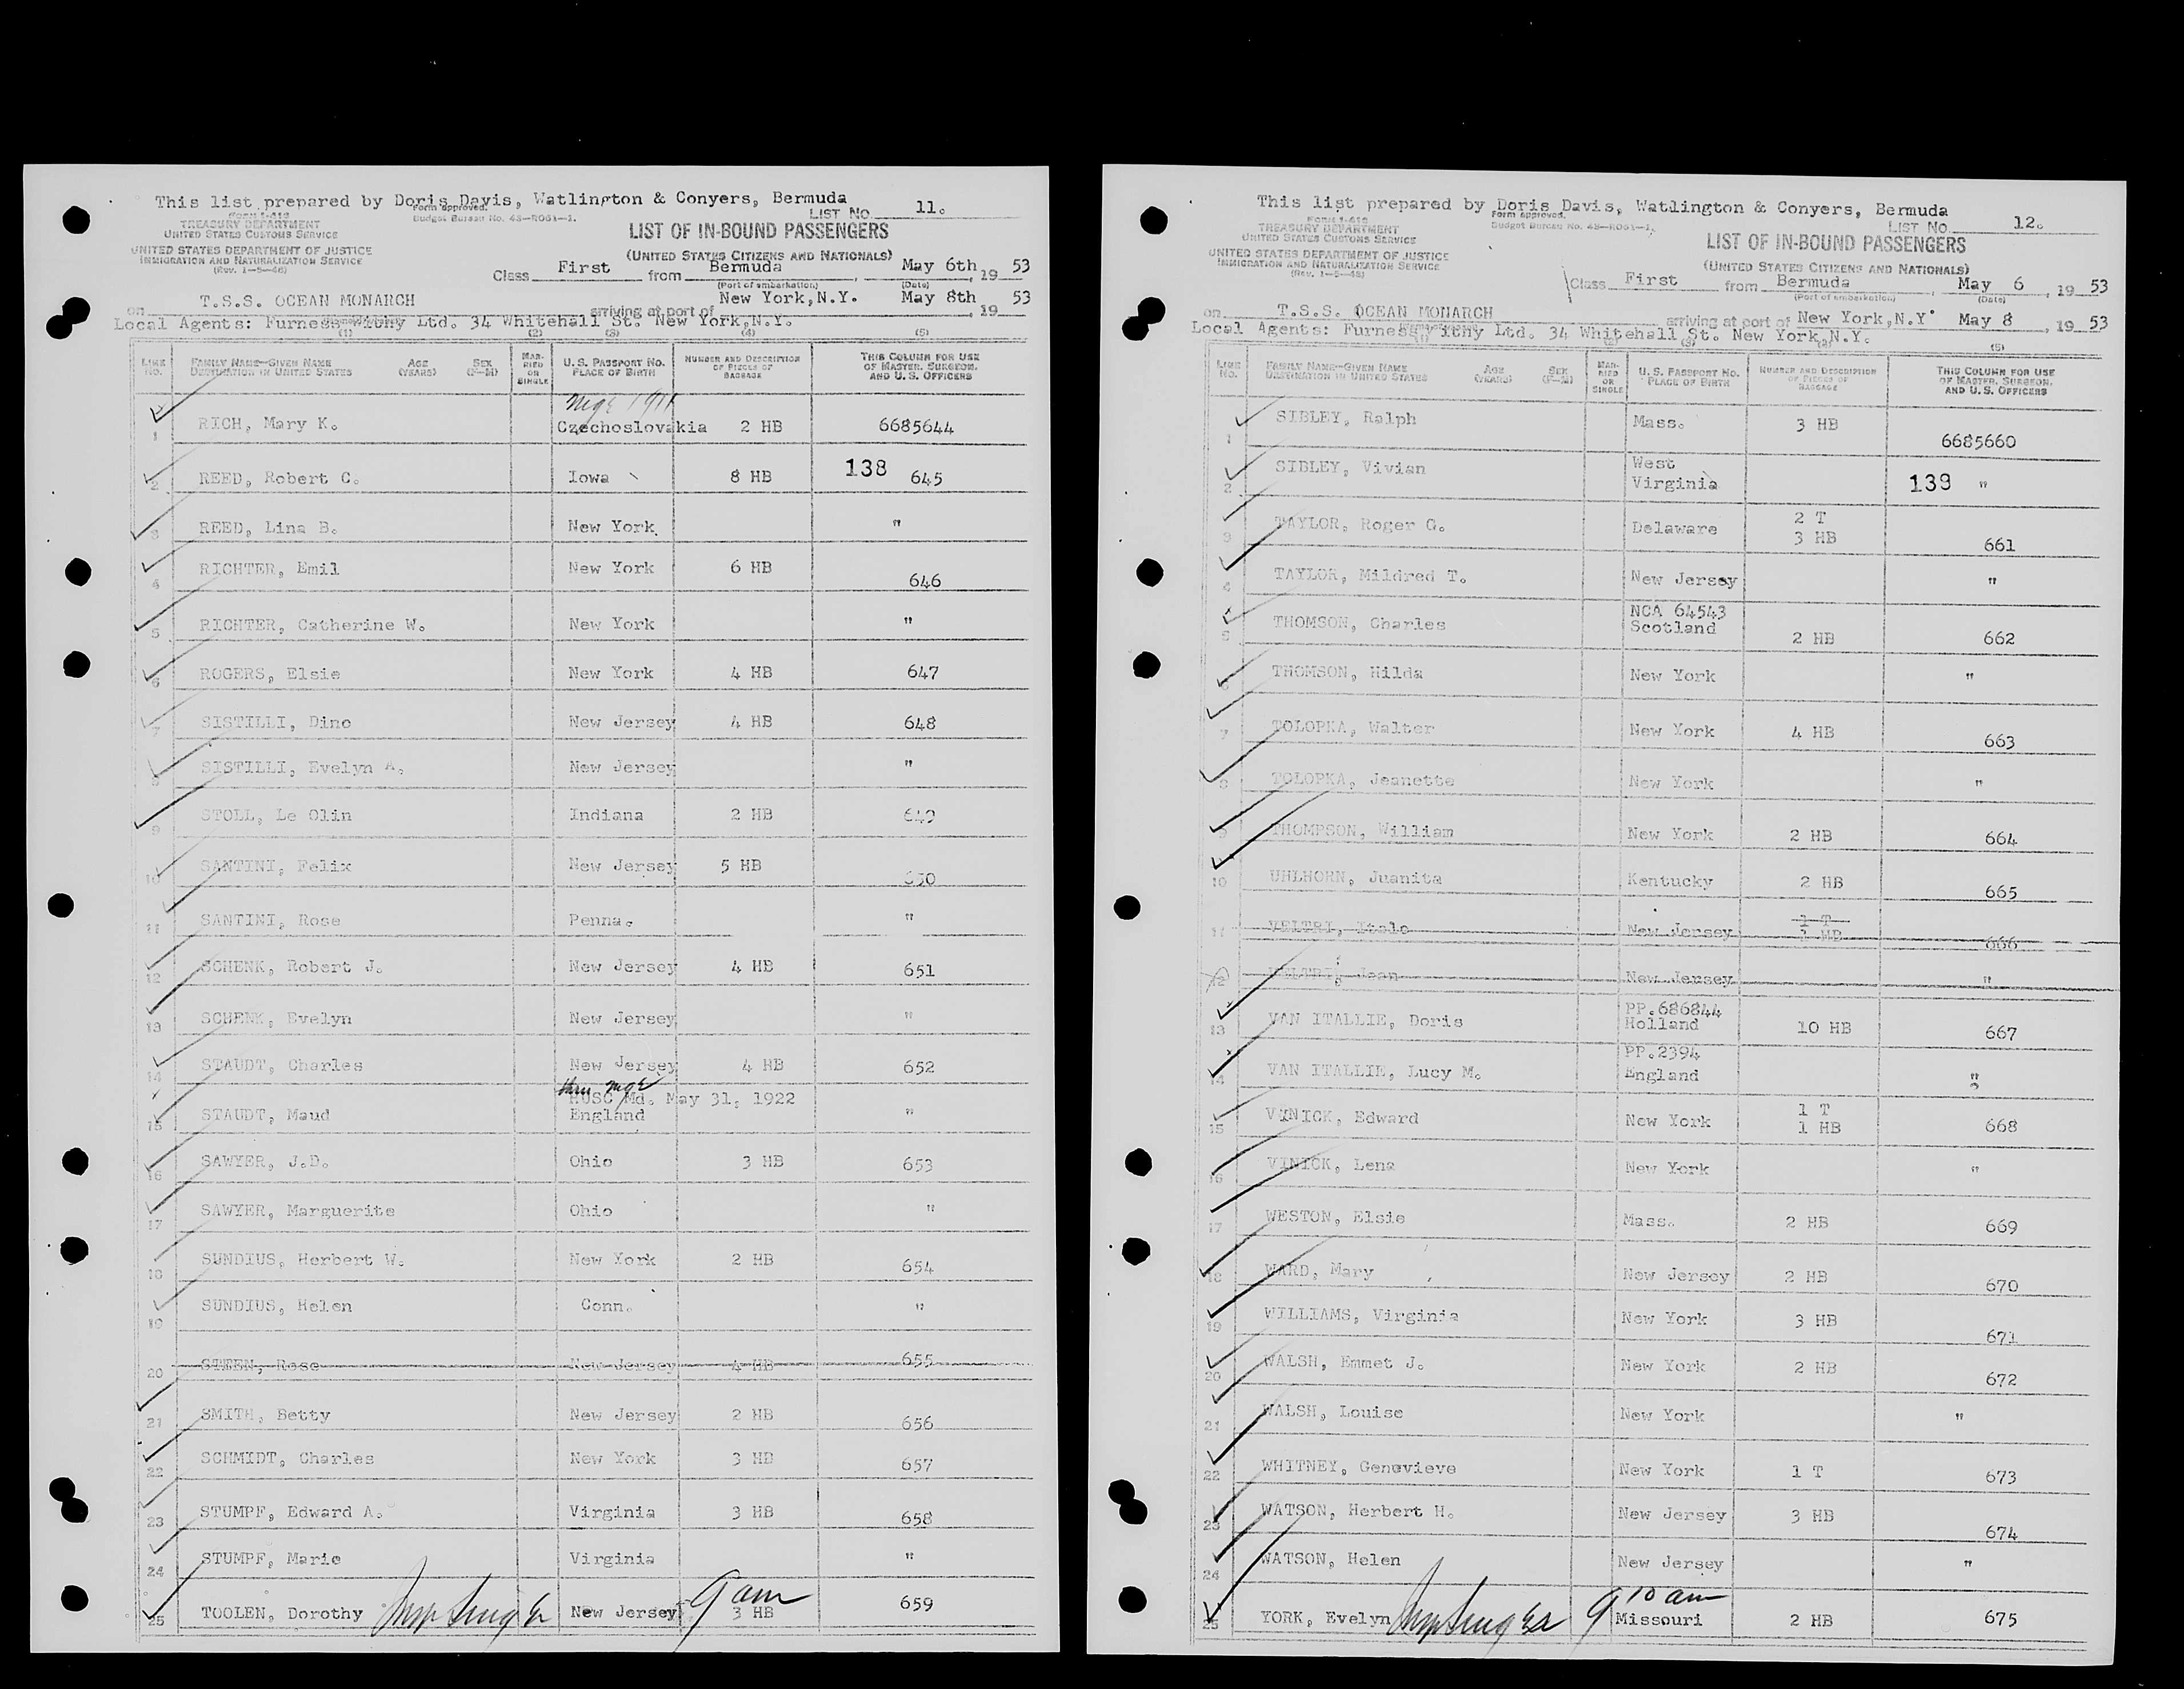 This list prepared by Doris Davis, Watlington & Conyers, Bermuda
Form approved.
Form I-418
Budget Bureau No. 43-R061-1.
LIST No. 11.
TREASURY DEPARTMENT
UNITED STATES CUSTOMS SERVICE
UNITED STATES DEPARTMENT OF JUSTICE
IMMIGRATION AND NATURALIZATION SERVICE
LIST OF IN-BOUND PASSENGERS
(UNITED STATES CITIZENS AND NATIONALS)
Class First from Bermuda, May 6th, 19 53
(Port of embarkation) (Date)
on T.S.S. OCEAN MONARCH arriving at port of New York,N.Y. May 8th, 19 53
Local Agents: Furness Withy Ltd. 34 Whitehall St. New York,N.Y.
(1) (2) (3) (4) (5)
LINE No. FAMILY NAME—GIVEN NAME DESTINATION IN UNITED STATES AGE (YEARS) SEX (F-M) MARRIED OR SINGLE U.S. PASSPORT No. PLACE OF BIRTH NUMBER AND DESCRIPTION OF PIECES OF BAGGAGE THIS COLUMN FOR USE OF MASTER, SURGEON, AND U. S. OFFICERS
1 RICH, Mary K. Czechoslovakia 2 HB 6685644
2 REED, Robert C. Iowa 8 HB 138 645
3 REED, Lina B. New York "
4 RICHTER, Emil New York 6 HB 646
5 RICHTER, Catherine W. New York "
6 ROGERS, Elsie New York 4 HB 647
7 SISTILLI, Dino New Jersey 4 HB 648
8 SISTILLI, Evelyn A. New Jersey "
9 STOLL, Le Olin Indiana 2 HB 649
10 SANTINI, Felix New Jersey 5 HB 650
11 SANTINI, Rose Penna. "
12 SCHENK, Robert J. New Jersey 4 HB 651
13 SCHENK, Evelyn New Jersey "
14 STAUDT, Charles New Jersey 4 HB 652
Md. May 31, 1922
15 STAUDT, Maud England "
16 SAWYER, J.D. Ohio 3 HB 653
17 SAWYER, Marguerite Ohio "
18 SUNDIUS, Herbert W. New York 2 HB 654
19 SUNDIUS, Helen Conn. "
20 STEEN, Rose New Jersey 4 HB 655
21 SMITH, Betty New Jersey 2 HB 656
22 SCHMIDT, Charles New York 3 HB 657
23 STUMPF, Edward A. Virginia 3 HB 658
24 STUMPF, Marie Virginia "
25 TOOLEN, Dorothy New Jersey 3 HB 659
9 am
This list prepared by Doris Davis, Watlington & Conyers, Bermuda
Form approved.
Form I-418
Budget Bureau No. 43-R061-1.
LIST No. 12.
TREASURY DEPARTMENT
UNITED STATES CUSTOMS SERVICE
UNITED STATES DEPARTMENT OF JUSTICE
IMMIGRATION AND NATURALIZATION SERVICE
LIST OF IN-BOUND PASSENGERS
(UNITED STATES CITIZENS AND NATIONALS)
Class First from Bermuda, May 6, 19 53
(Port of embarkation) (Date)
on T.S.S. OCEAN MONARCH arriving at port of New York,N.Y. May 8, 19 53
Local Agents: Furness Withy Ltd. 34 Whitehall St. New York,N.Y.
LINE No. FAMILY NAME—GIVEN NAME DESTINATION IN UNITED STATES AGE (YEARS) SEX (F-M) MARRIED OR SINGLE U.S. PASSPORT No. PLACE OF BIRTH NUMBER AND DESCRIPTION OF PIECES OF BAGGAGE THIS COLUMN FOR USE OF MASTER, SURGEON, AND U. S. OFFICERS
1 SIBLEY, Ralph Mass. 3 HB 6685660
2 SIBLEY, Vivian West Virginia 139 "
3 TAYLOR, Roger G. Delaware 2 T 3 HB 661
4 TAYLOR, Mildred T. New Jersey "
5 THOMSON, Charles NCA 64543 Scotland 2 HB 662
6 THOMSON, Hilda New York "
7 TOLOPKA, Walter New York 4 HB 663
8 TOLOPKA, Jeanette New York "
9 THOMPSON, William New York 2 HB 664
10 UHLHORN, Juanita Kentucky 2 HB 665
11 VELTRI, Italo New Jersey 1 T HB 666
12 VELTRI, Jean New Jersey "
13 VAN ITALLIE, Doris PP.686844 Holland 10 HB 667
14 VAN ITALLIE, Lucy M. PP.2394 England "
15 VINICK, Edward New York 1 T 1 HB 668
16 VINICK, Lena New York "
17 WESTON, Elsie Mass. 2 HB 669
18 WARD, Mary New Jersey 2 HB 670
19 WILLIAMS, Virginia New York 3 HB 671
20 WALSH, Emmet J. New York 2 HB 672
21 WALSH, Louise New York "
22 WHITNEY, Genevieve New York 1 T 673
23 WATSON, Herbert H. New Jersey 3 HB 674
24 WATSON, Helen New Jersey "
25 YORK, Evelyn Missouri 2 HB 675
9 10 am